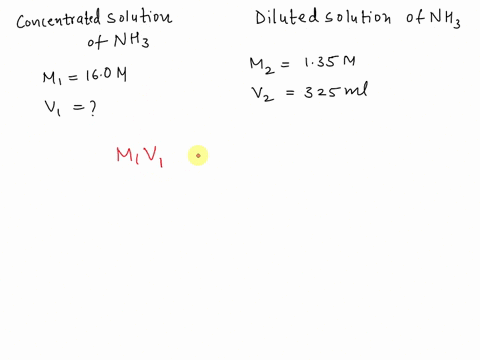 Concentrated solution
of NH3
M1 = 16.0 M
V1 = ?
Diluted solution of NH3
M2 = 1.35 M
V2 = 325 ml
M1V1